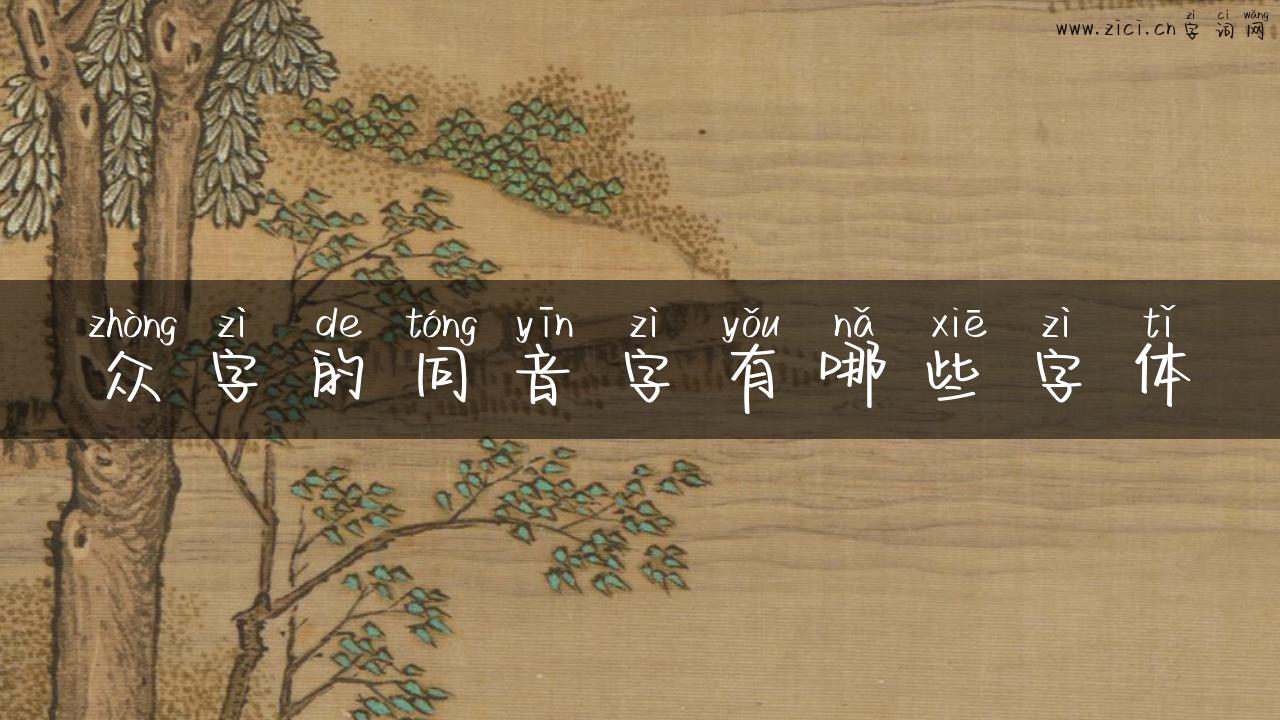 zì cí wǎng
www.zici.cn 字词网
zhòng zì de tóng yīn zì yǒu nǎ xiē zì tǐ
众字的同音字有哪些字体